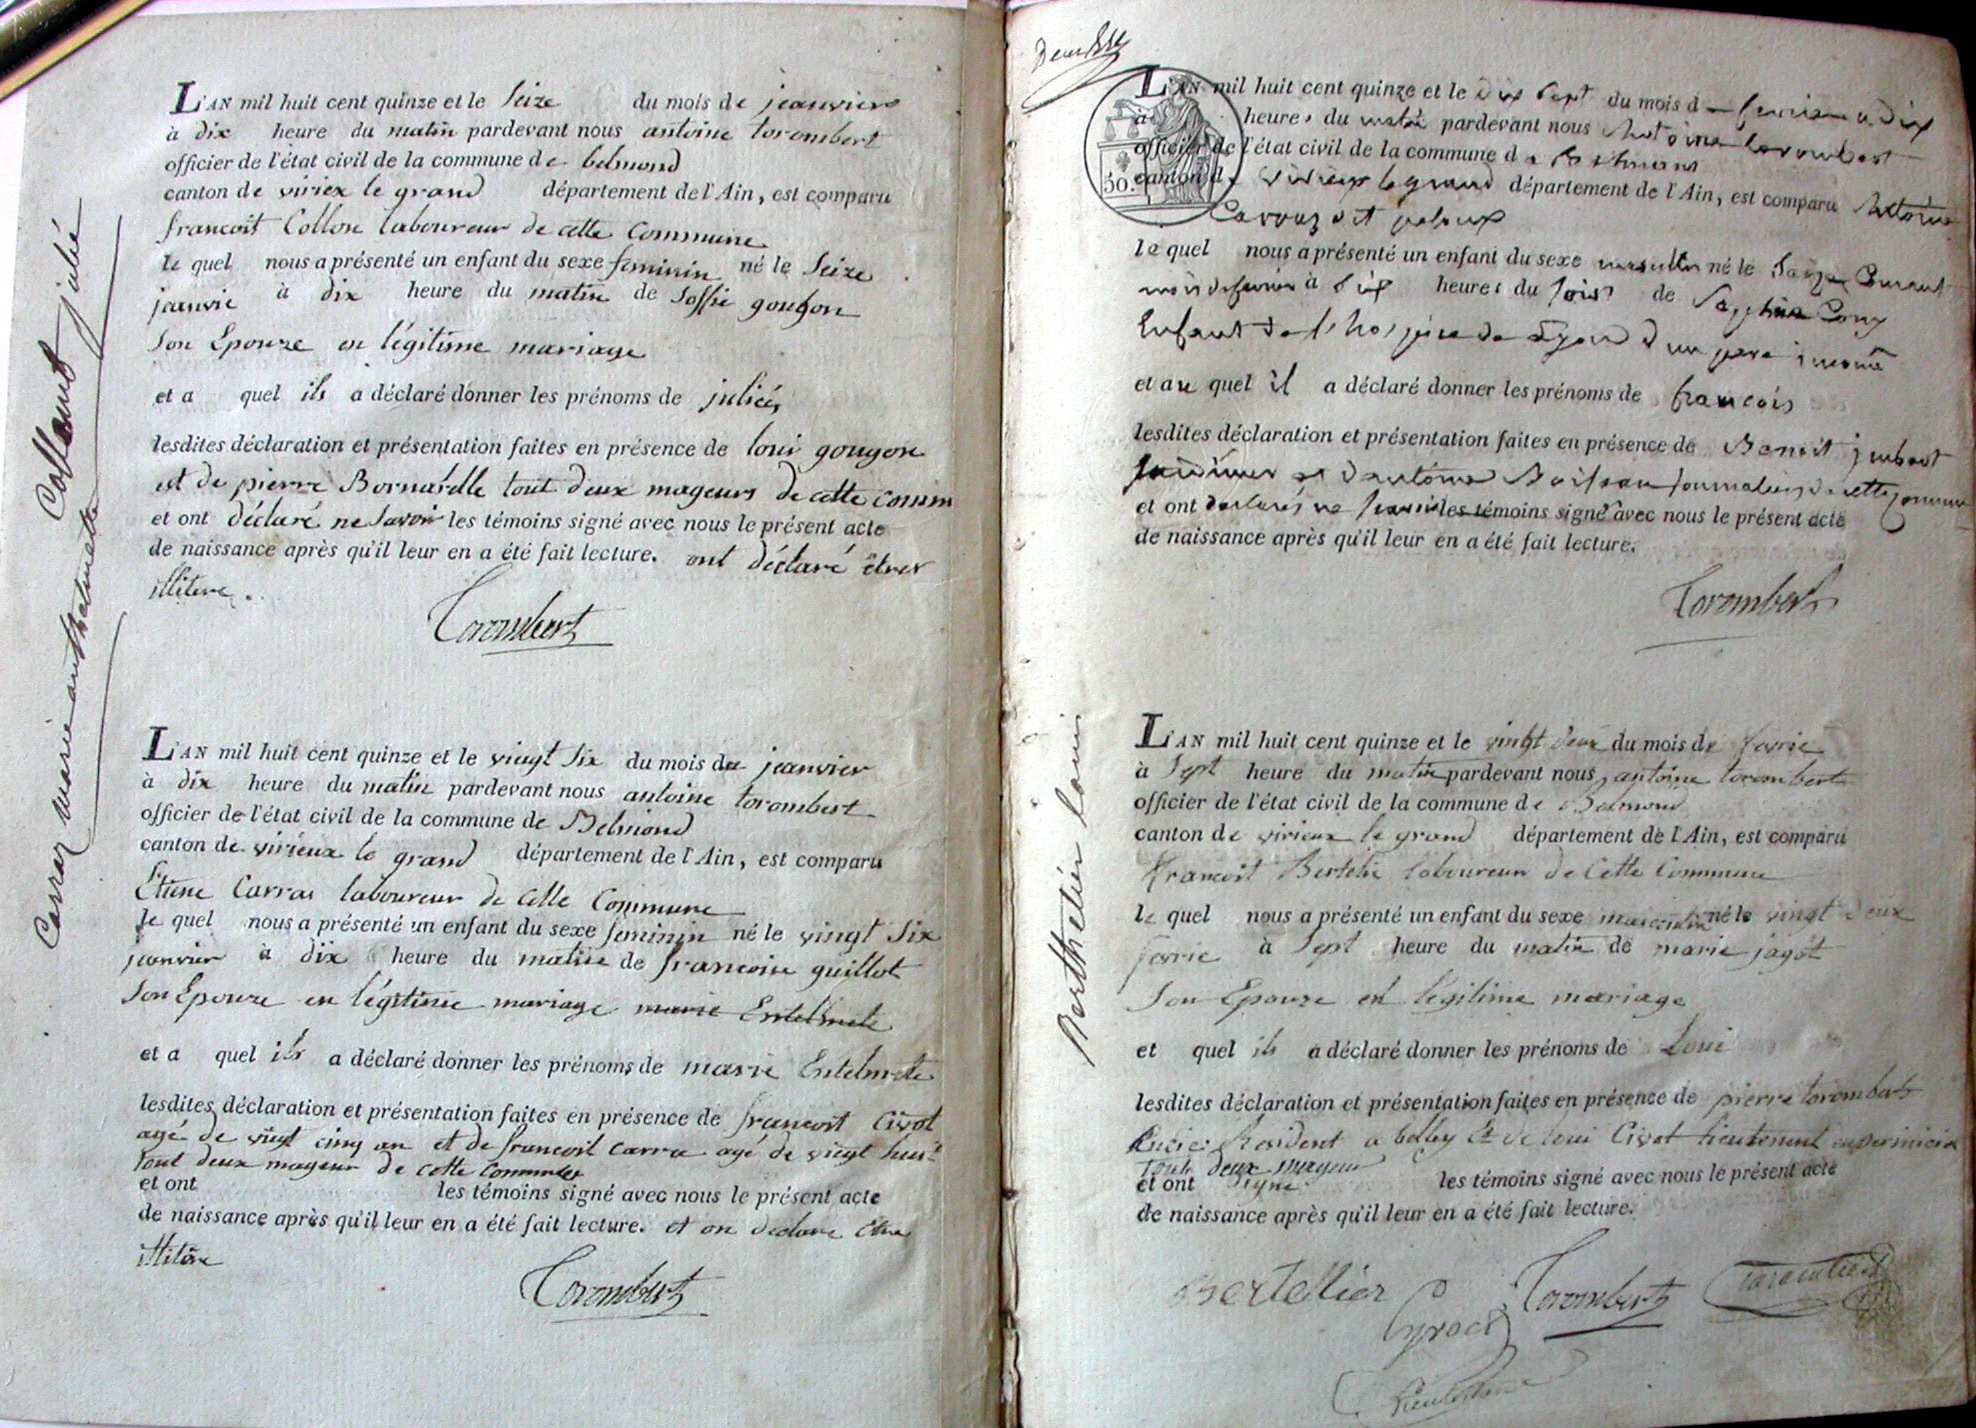 Collomb julie
Carraz marie anthelmette
L'AN mil huit cent quinze et le seize du mois de jeanvier
à dix heure du matin pardevant nous antoine torombert
officier de l'état civil de la commune de belmond
canton de viriex le grand département de l'Ain, est comparu
francoit Collon laboureur de cette Commune
le quel nous a présenté un enfant du sexe feminin né le seize
janvié à dix heure du matin de soffie goujon
son Epouze en légitime mariage
et a quel ils a déclaré donner les prénoms de julié
lesdites déclaration et présentation faites en présence de loui goujon
et de pierre Bornarelle tout deux mageurs de cette comm
et ont déclaré ne savoir les témoins signé avec nous le présent acte
de naissance après qu'il leur en a été fait lecture. ont déclaré êtres
illitere.
Torombert
L'AN mil huit cent quinze et le vingt six du mois de jeanvier
à dix heure du matin pardevant nous antoine torombert
officier de l'état civil de la commune de Belmond
canton de virieux le grand département de l'Ain, est comparu
Etiene Carras laboureur de cette Commune
le quel nous a présenté un enfant du sexe feminin né le vingt six
janvier à dix heure du matin de francoise guillot
son Epouze en légitime mariage marie Entelmete
et a quel ils a déclaré donner les prénoms de marie Entelmete
lesdites déclaration et présentation faites en présence de francoit Civot
agé de vingt cinq an et de francoit carra agé de vingt huit
tout deux mageur de cette Commune
et ont les témoins signé avec nous le présent acte
de naissance après qu'il leur en a été fait lecture. et on déclare être
illitére
Torombert
50.
L'AN mil huit cent quinze et le dix sept du mois d fevrier a dix
à heures du matin pardevant nous Antoine torombert
officier de l'état civil de la commune de Belmond
canton de Virieux le grand département de l'Ain, est comparu Antoine
Carraz dit paloux
le quel nous a présenté un enfant du sexe masculin né le Courant
mois de fevrier à six heures du soir de Sophie
Enfant de l'hospice de Lyon d'un pere inconnu
et au quel il a déclaré donner les prénoms de françois
lesdites déclaration et présentation faites en présence de Benoit jmbert
et d'antoine journaliers de cette commune
et ont declarés ne savoir les témoins signé avec nous le présent acte
de naissance après qu'il leur en a été fait lecture.
Torombert
Berthellier loui
L'AN mil huit cent quinze et le vingt deux du mois de favrie
à sept heure du matin pardevant nous antoine torombert
officier de l'état civil de la commune de Belmond
canton de virieux le grand département de l'Ain, est comparu
francoit Bertelié laboureur de Cette Commune
le quel nous a présenté un enfant du sexe masculin né le vingt deux
favrie à sept heure du matin de marie jagot
son Epouze en légitime mariage
et quel ils a déclaré donner les prénoms de Loui
lesdites déclaration et présentation faites en présence de pierre torombert
Résident a belley et de loui Civot lieutenent
tout deux mageur
et ont signé les témoins signé avec nous le présent acte
de naissance après qu'il leur en a été fait lecture.
Bertellier Torombert